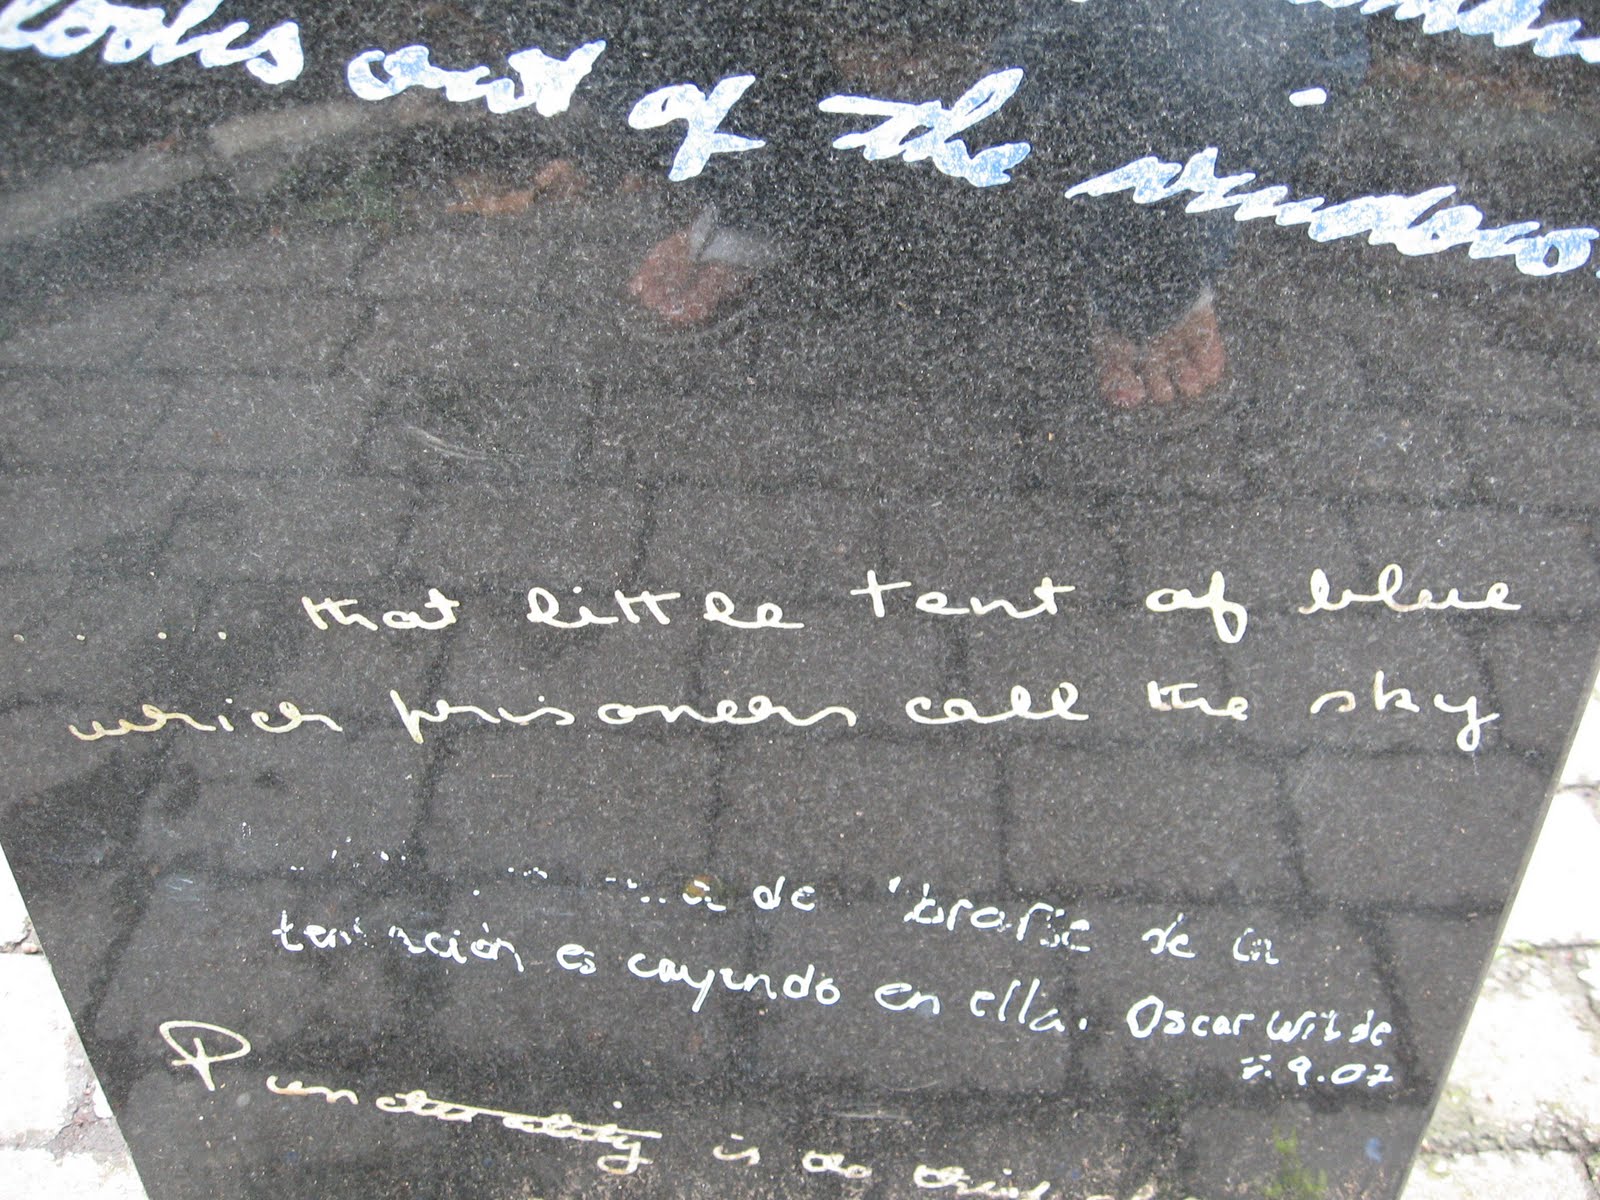 looks out of the window.
..... that little tent of blue
which prisoners call the sky
de librarse de la
tentación es cayendo en ella. Oscar Wilde
9.07
Punctuality is